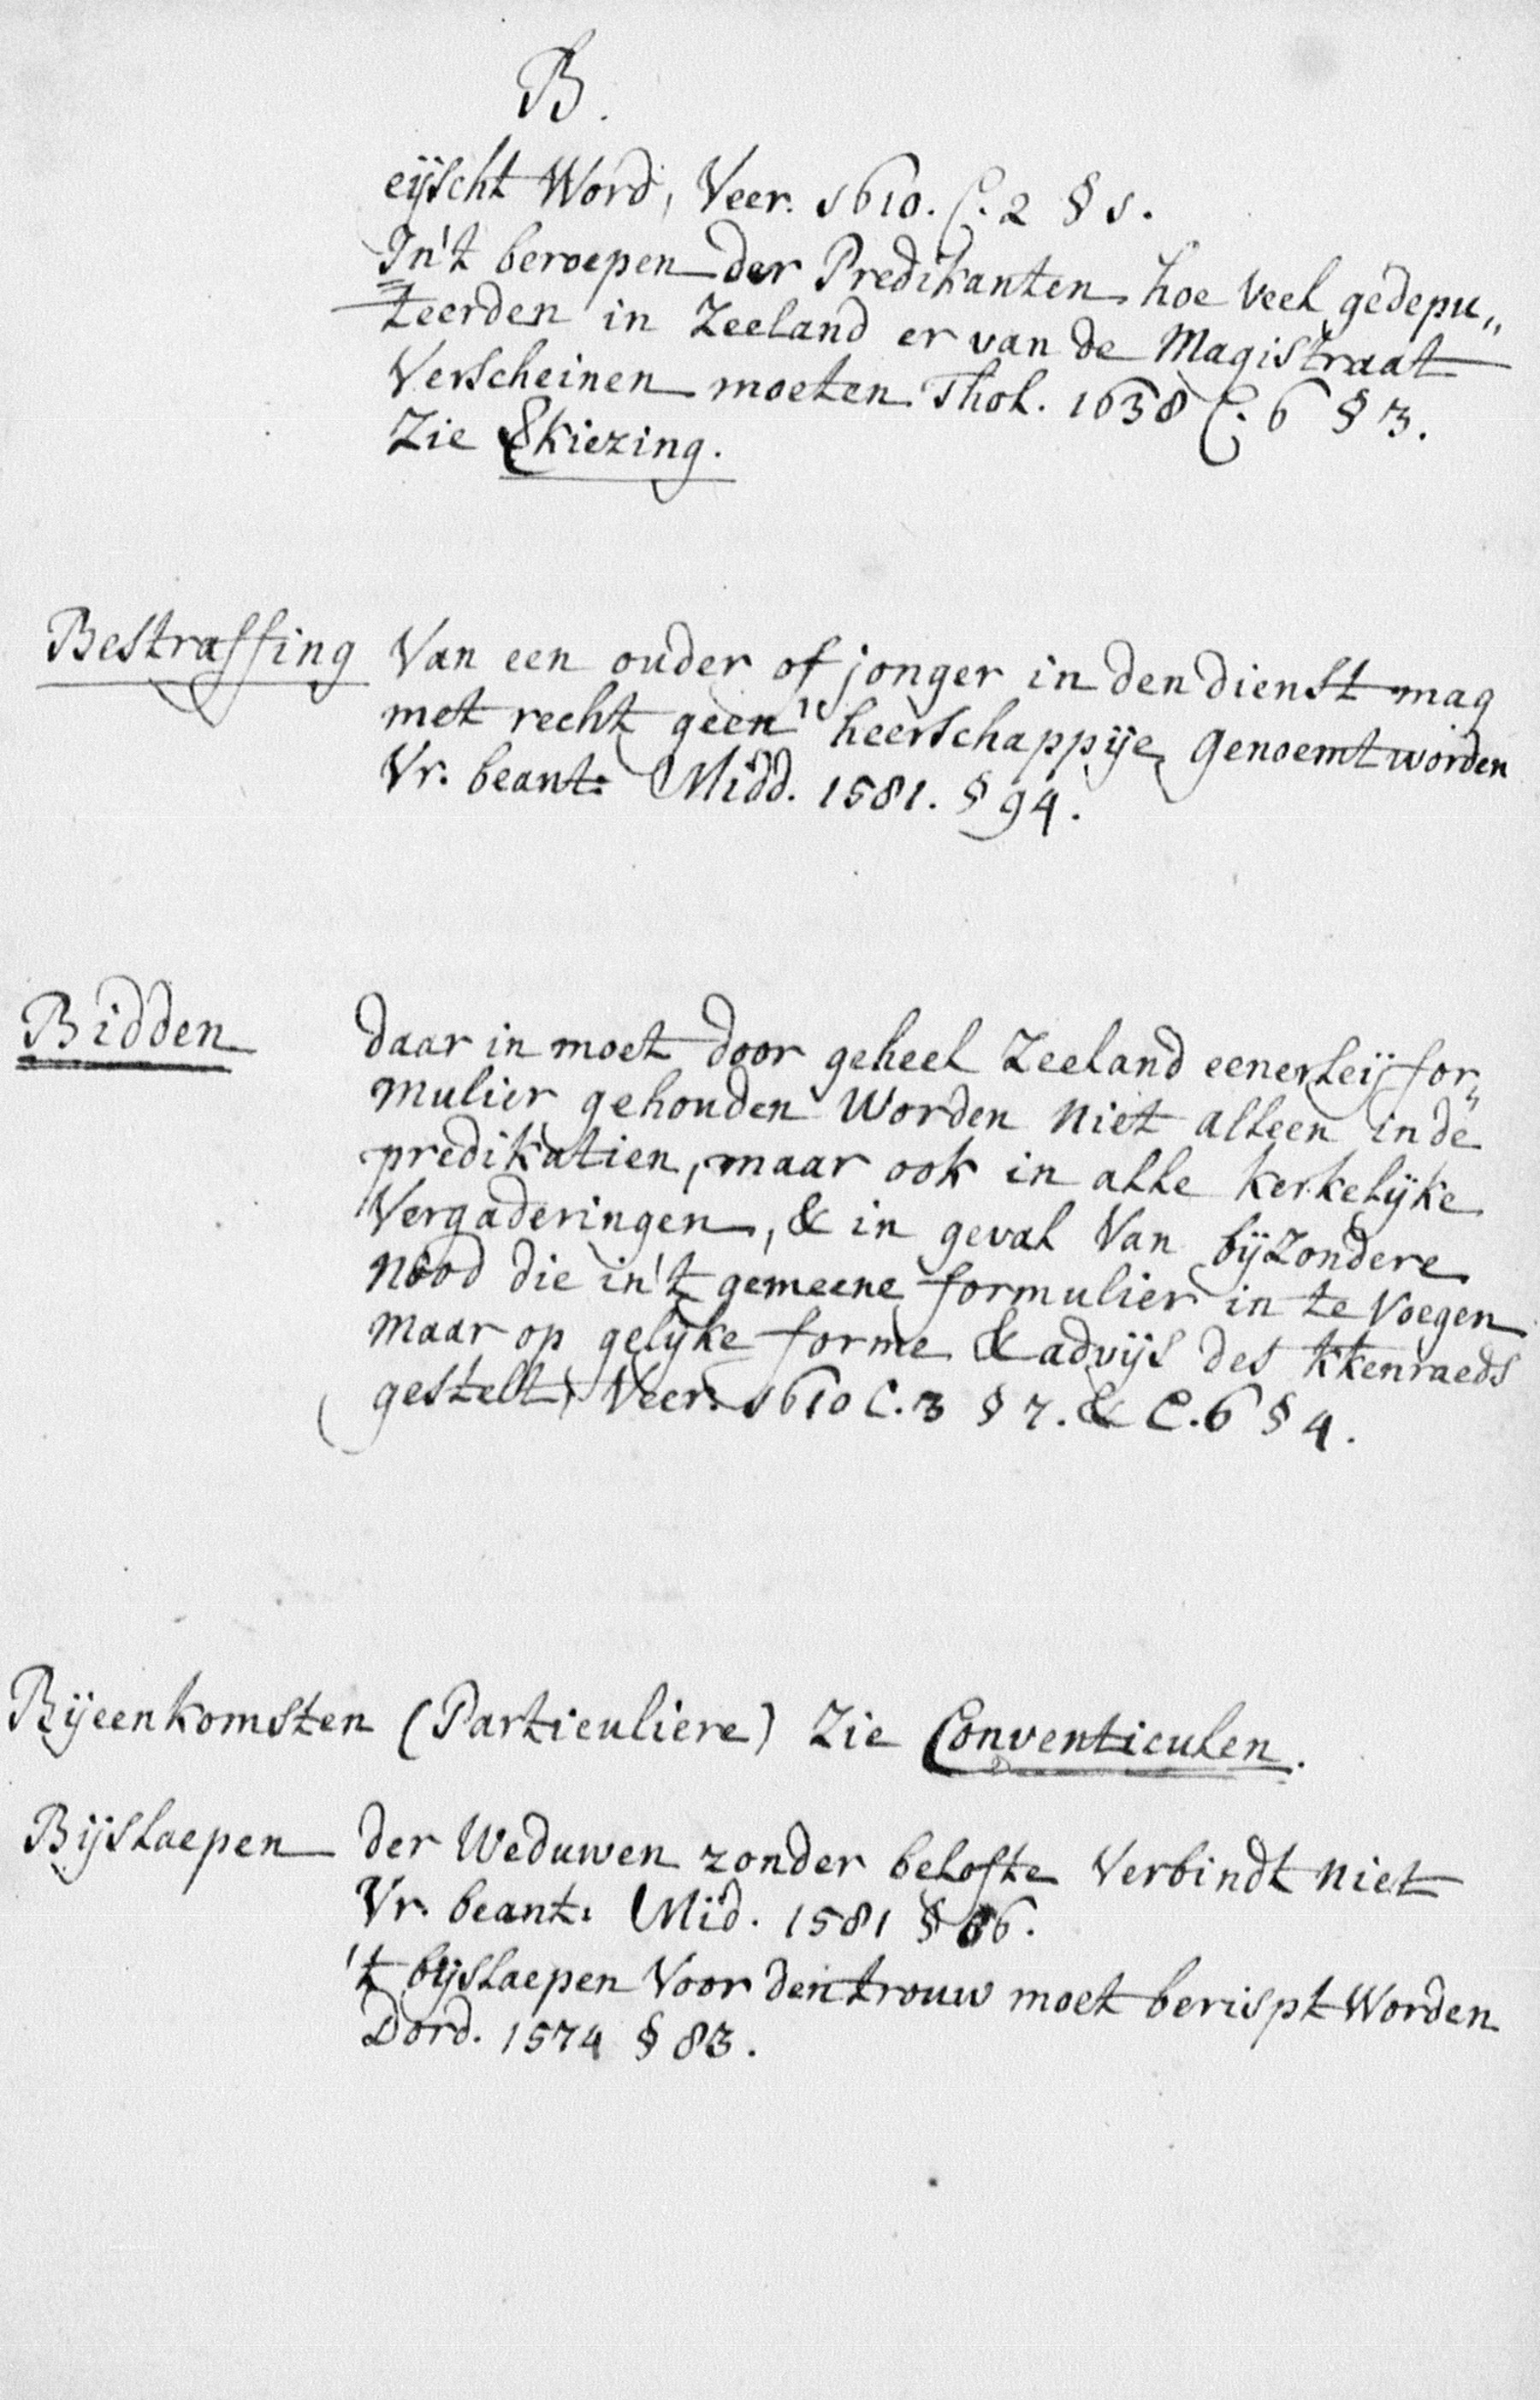 B.
eijscht Word, Veer. 1610. C. 2 § 1.
In't beroepen der Predikanten hoe veel gedepu„
teerden in Zeeland er van de Magistraat
Verscheinen moeten Thol. 1638 C. 6 § 3.
Zie Ekiezing.
Bestraffing Van een ouder of jonger in den dienst mag
met recht geen heerschappije genoemt worden
Vr. beant: Midd. 1581. § 94.
Bidden daar in moet door geheel Zeeland eenerleij for„
mulier gehouden Worden niet alleen in de
predikatien, maar ook in alle kerkelijke
Vergaderingen, & in geval Van bijzondere
Nood die in't gemeene formulier in te Voegen
maar op gelijke forme & advijs des kkenraeds
gestelt, Veer. 1610 C. 3 § 7. & C. 6 § 4.
Bijeenkomsten (Particuliere) Zie Conventiculen.
Bijslaepen der Weduwen zonder belofte Verbindt niet
Vr. beant: Mid. 1581 § 86.
't bijslaepen Voor den trouw moet berispt Worden
Dord. 1574 § 83.